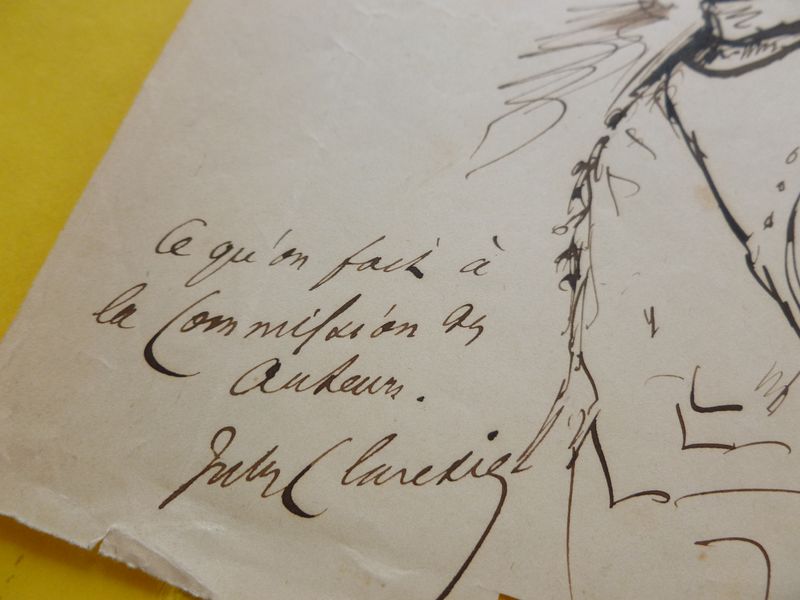 Ce qu'on fait à
la Commission des
Auteurs.
Jules Claretie